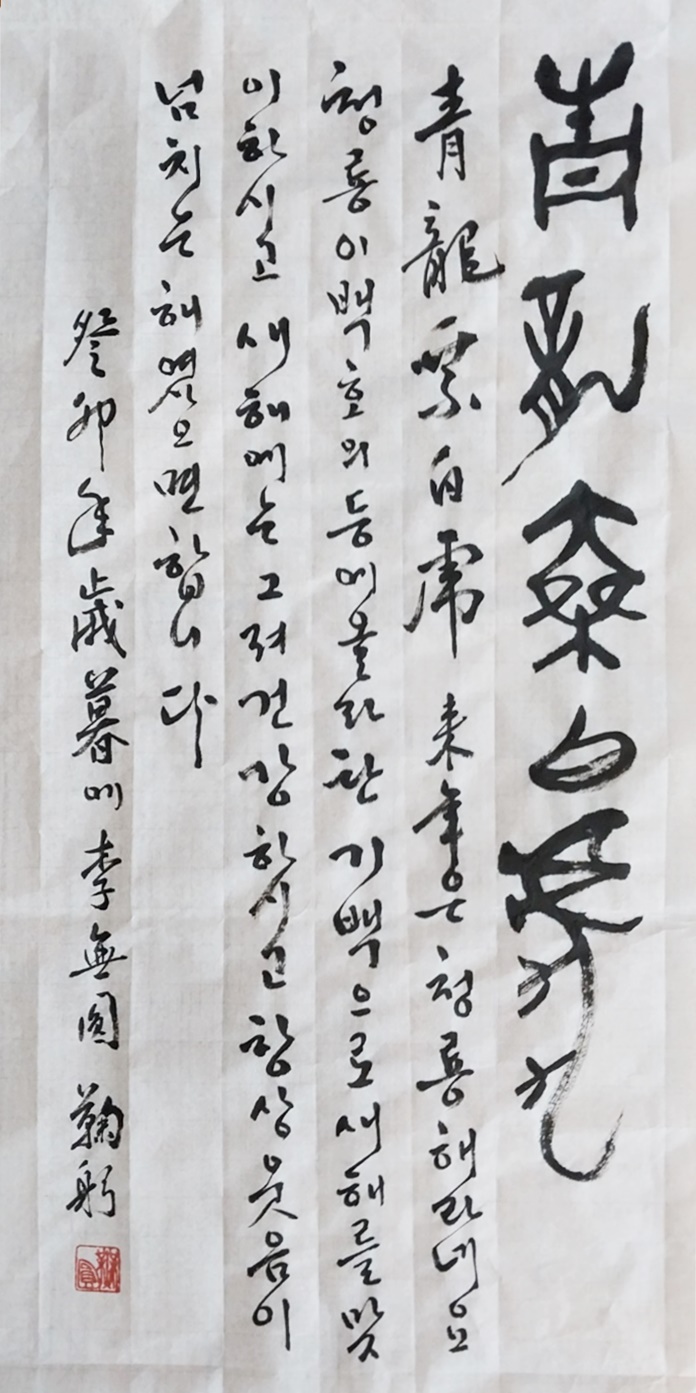 青龍乘白虎
青龍乘白虎 来年은 청룡해라네요
청룡이 백호의 등에 올라탄 기백으로 새해를 맞
이하시고 새해에는 그저 건강하시고 항상 웃음이
넘치는 해였으면 합니다
癸卯年歲暮에 李無圓 鞠躬